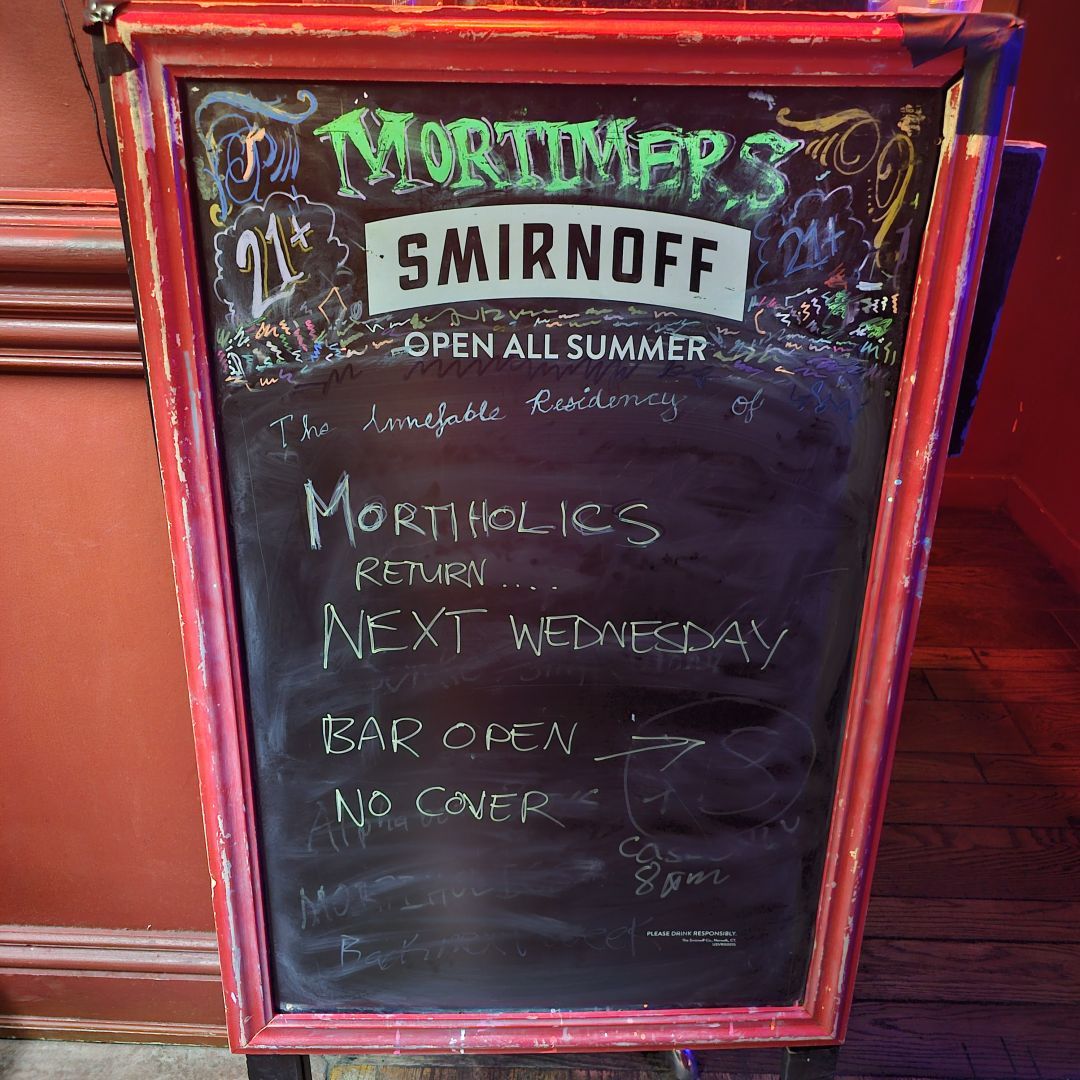 MORTIMERS
21+
21+
SMIRNOFF
OPEN ALL SUMMER
The Innefable Residency of
MORTIHOLICS
RETURN ....
NEXT WEDNESDAY
BAR OPEN →
NO COVER
8pm
PLEASE DRINK RESPONSIBLY.
The Smirnoff Co., Norwalk, CT.